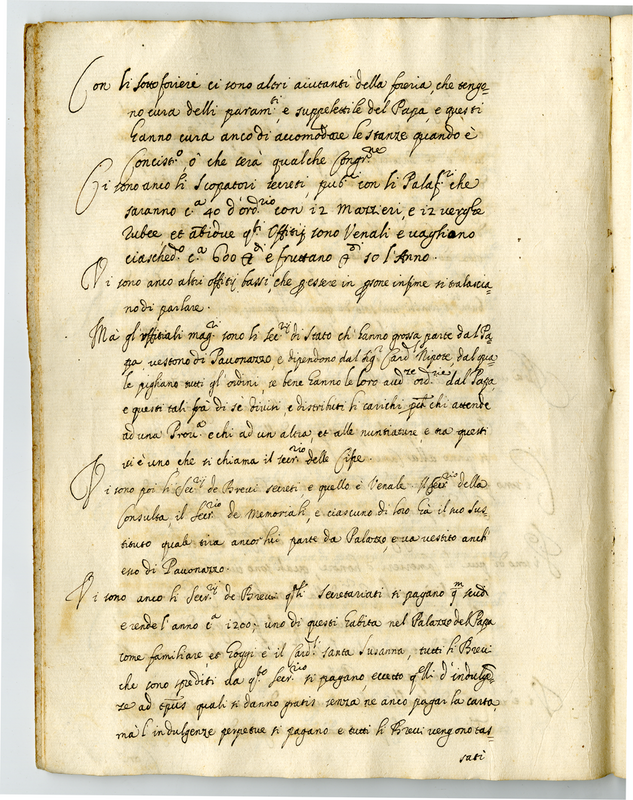 Con li sotto forieri ci sono altri aiutanti della foreria, che tenge-
no cura delli param.ti e suppelettile del Papa, e questi
hanno cura anco di accomodare le stanze quando è
Concist.o ò che serà qualche Congr.ne
Ci sono anco li Scopatori secreti, pub.ci con li Palaf.ri che
saranno c.a 40 d'ord.rio con 12 Mazzieri, e 12 verghe
Rubee et q.sti Offitij sono Venali e vagliono
ciasched.o c.a 600 e fruttano 50 l'Anno.
Vi sono anco altri offitij bassi, che p essere in psone infime si tralascia-
no di parlare.
Mà gl'offitiali mag.ri sono li sec.rij di Stato ch'hanno grossa parte dal Pa-
pa vestono di Pavonazzo, e dipendono dal Sig.r Card.l Nipote, dal qua-
le pigliano tutti gl'ordini, se bene hanno le loro aud.ze ord.rie dal Papa,
e questi tali frà di sè divisi, e distributi li carichi p.che chi attende
ad una Prov.a e chi ad un altra, et alle nuntiature, e trà questi
vi è uno che si chiama il secr.rio delle Cifre.
Vi sono poi li Sec.rij de Brevi secreti, e quello è Venale, Il secr.rio della
Consulta, il secr.rio de Memoriali, e ciascuno di loro hà il suo Sus-
tituto quale tira ancor lui parte da Palazzo, e và vestito anch'
esso di Pauonazzo.
Vi sono anco li Secr.rij de Brevi q.sti secretariati si pagano q.m scudi
e rende l'anno c.a 1200; uno di questi habita nel Palazzo del Papa
come familiare, et hoggi è il Card.l Santa Susanna, tutti li Brevi
che sono spediti da q.sto secr.rio si pagano, eccetto q.lli d'indulgē-
ze ad tp̄us quali si danno gratis senza ne anco pagar la carta
mà l'indulgenze perpetue si pagano e tutti li Brevi vengono tas-
sati